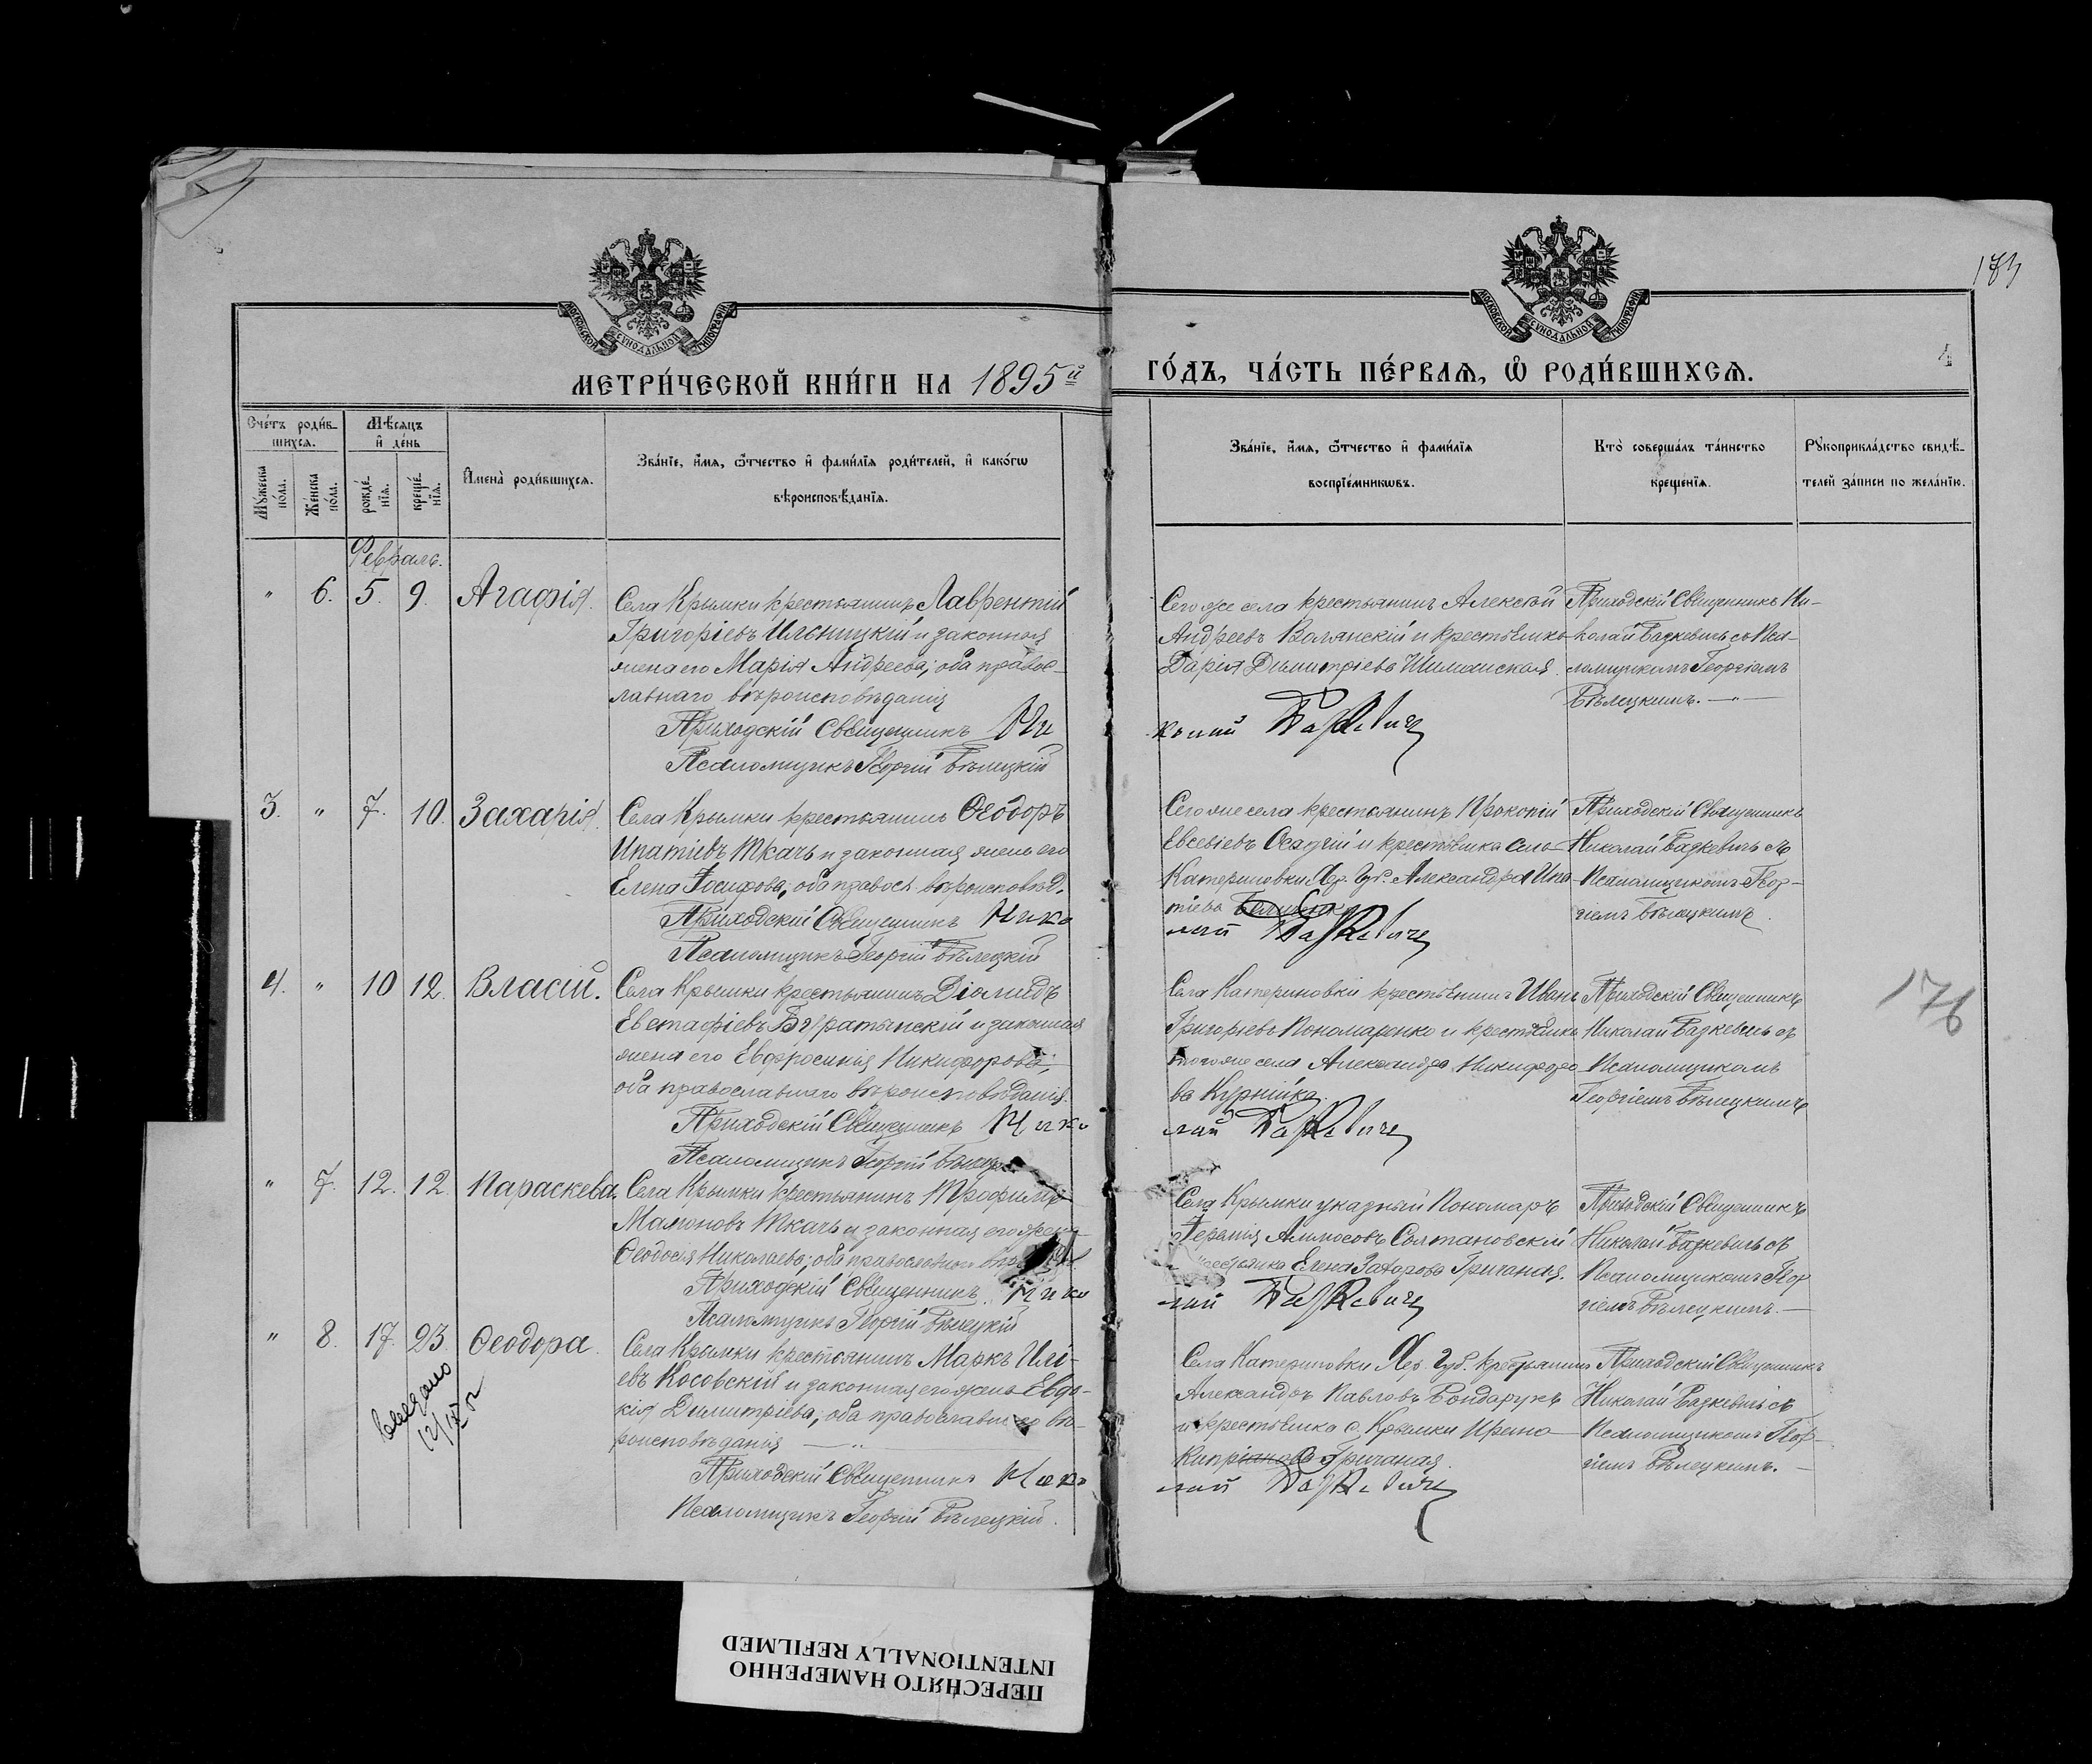 173
МОСКОВСКОЙ СѴНОДАЛЬНОЙ ТИПОГРАФІИ
МОСКОВСКОЙ СѴНОДАЛЬНОЙ ТИПОГРАФІИ
МЕТРИ́ЧЕСКОЙ КНИ́ГИ НА 1895й
ГО́ДЪ, ЧА́СТЬ ПЕ́РВАѦ, Ѡ҆ РОДИ́ВШИХСѦ.
4
Сче́тъ роди́в-
шихсѧ.
Мѣ́сѧцъ
и҆ де́нь
Мꙋ́жеска
по́ла.
Же́нска
по́ла.
рожде́-
нїѧ.
креще́-
нїѧ.
И҆мена̀ роди́вшихсѧ.
Зва́нїе, и҆́мѧ, ѻ҆́тчество и҆ фами́лїѧ роди́телей, и҆ како́гѡ
вѣроисповѣ́данїѧ.
Зва́нїе, и҆́мѧ, ѻ҆́тчество и҆ фами́лїѧ
воспрїе́мникѡвъ.
Кто̀ соверша́лъ та́инство
креще́нїѧ.
Рꙋкоприкла́дство свидѣ́-
телей за́писи по жела́нїю.
Февраль.
" 6. 5. 9. Агафія.
Села Крымки крестьянинъ Лаврентій
Григоріевъ Ильницкій и законная
жена его Марія Андреева; оба правос-
лавнаго вѣроисповѣданія
Приходскій Священникъ Ни
Псаломщикъ Георгій Бѣлецкій
Сего же села крестьянинъ Алексѣй
Андреевъ Волянскій и крестьянка
Дарія Димитріева Шиманская.
колай Базкевичъ
Приходскій Священникъ Ни-
колай Базкевичъ съ Пса-
ломщикомъ Георгіемъ
Бѣлецкимъ. — " —
3. " 7. 10. Захарія.
Села Крымки крестьянинъ Ѳеодоръ
Ипатіевъ Ткачъ и законная жена его
Елена Іосифова, оба правосл. вѣроисповѣд.
Приходскій Священникъ Нико
Псаломщикъ Георгій Бѣлецкій
Сего же села крестьянинъ Прокопій
Евсевіевъ Осадчій и крестьянка села
Катериновки Хер. Губ. Александра Ипа-
тіева
лай Базкевичъ
Приходскій Священникъ
Николай Базкевичъ съ
Псаломщикомъ Геор-
гіемъ Бѣлецкимъ.
4. " 10 12. Власій.
Села Крымки крестьянинъ Діомидъ
Евстафіевъ Буратынскій и законная
жена его Евфросинія Никифорова;
оба православнаго вѣроисповѣданія.
Приходскій Священникъ Нико
Псаломщикъ Георгій
Села Катериновки крестьянинъ Иванъ
Григорьевъ Пономаренко и крестьянка
тогоже села Александра Никифоро-
ва Курнійка.
лай Базкевичъ
Приходскій Священникъ
Николай Базкевичъ съ
Псаломщикомъ
Георгіемъ Бѣлецкимъ
176
" 7. 12. 12. Параскева.
Села Крымки крестьянинъ Трофимъ
Мамоновъ Ткачъ и законная его жена
Ѳеодосія Николаева; оба православнаго
Приходскій Священникъ Нико
Псаломщикъ Георгій Бѣлецкій
Села Крымки указный Пономаръ
Іеремія Солтановскій
Елена Захарова Гричаная.
лай Базкевичъ
Приходскій Священникъ
Николай Базкевичъ съ
Псаломщикомъ Геор
гіемъ Бѣлецкимъ. —
" 8. 17. 23. Ѳеодора.
Села Крымки крестьянинъ Маркъ Илі-
евъ Косовскій и законная его жена Евдо-
кія Димитріева; оба православнаго вѣ-
роисповѣданія — " —
Приходскій Священникъ Нико
Псаломщикъ Георгій Бѣлецкій.
Села Катериновки Хер. Губ. крестьянинъ
Александръ Павловъ Бондарукъ
и крестьянка с. Крымки Ирина
Кипріанова Гричаная.
лай Базкевичъ
Приходскій Священникъ
Николай Базкевичъ съ
Псаломщикомъ Геор-
гіемъ Бѣлецкимъ. —
ПЕРЕСНЯТО НАМЕРЕННО
INTENTIONALLY REFILMED